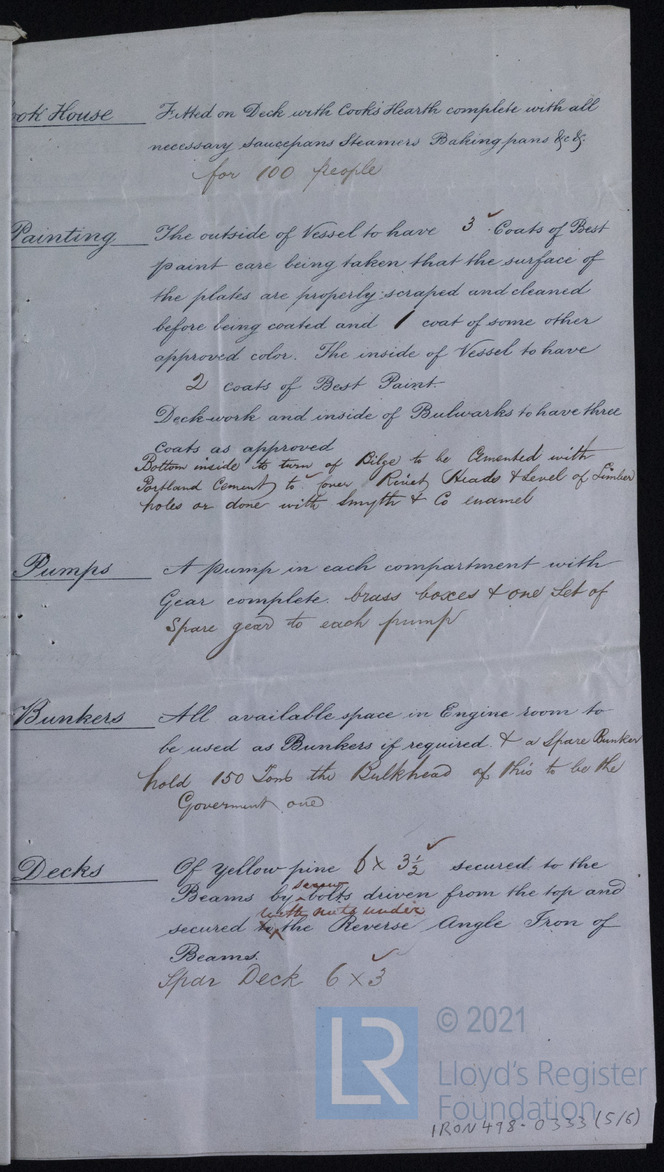 ook House Fitted on Deck with Cook's Hearth complete with all
necessary saucepans Steamers Baking pans &c &c
for 100 people
Painting The outside of Vessel to have 3 Coats of Best
paint care being taken that the surface of
the plates are properly scraped and cleaned
before being coated and 1 coat of some other
approved color. The inside of Vessel to have
2 coats of Best Paint.
Deck work and inside of Bulwarks to have three
coats as approved
Bottom inside to turn of Bilge to be Cemented with
Portland Cement to cover Rivet Heads & Level of Limber
holes or done with Smyth & Co enamel
Pumps A pump in each compartment with
Gear complete. brass boxes & one Set of
Spare gear to each pump
Bunkers All available space in Engine room to
be used as Bunkers if required & a Spare Bunker
hold 150 Tons the Bulkhead of this to be the
Goverment one
Decks Of Yellow pine 6 x 3½ secured to the
Beams by screw bolts driven from the top and
with nuts under
secured to the Reverse Angle Iron of
Beams.
Spar Deck 6 x 3
LR
© 2021
Lloyd's Register
Foundation
IRON498-0333 (5/6)